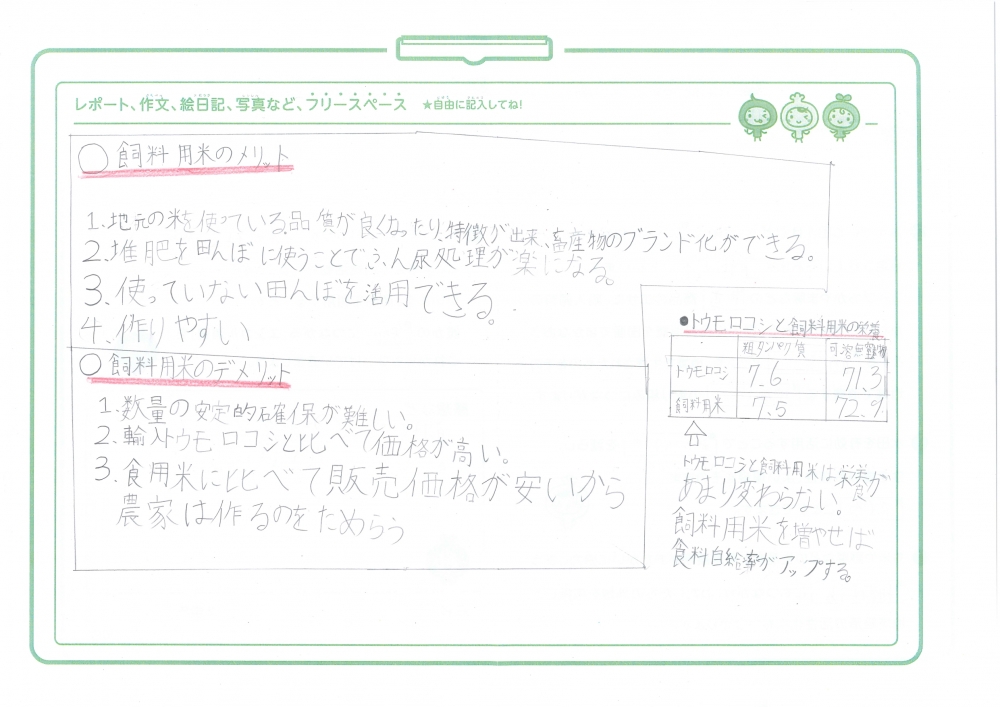 レポート、作文、絵日記、写真など、フリースペース ★自由に記入してね!
○飼料用米のメリット
1.地元の米を使っている品質が良くなったり、特徴が出来、畜産物のブランド化ができる。
2.堆肥を田んぼに使うことでふん尿処理が楽になる。
3.使っていない田んぼを活用できる。
4.作りやすい
○飼料用米のデメリット
1.数量の安定的確保が難しい。
2.輸入トウモロコシと比べて価格が高い。
3.食用米に比べて販売価格が安いから
農家は作るのをためらう
●トウモロコシと飼料用米の栄養
粗タンパク質 可溶無窒物
トウモロコシ 7.6 71.3
飼料用米 7.5 72.9
⇧
トウモロコシと飼料用米は栄養が
あまり変わらない。
飼料用米を増やせば
食料自給率がアップする。